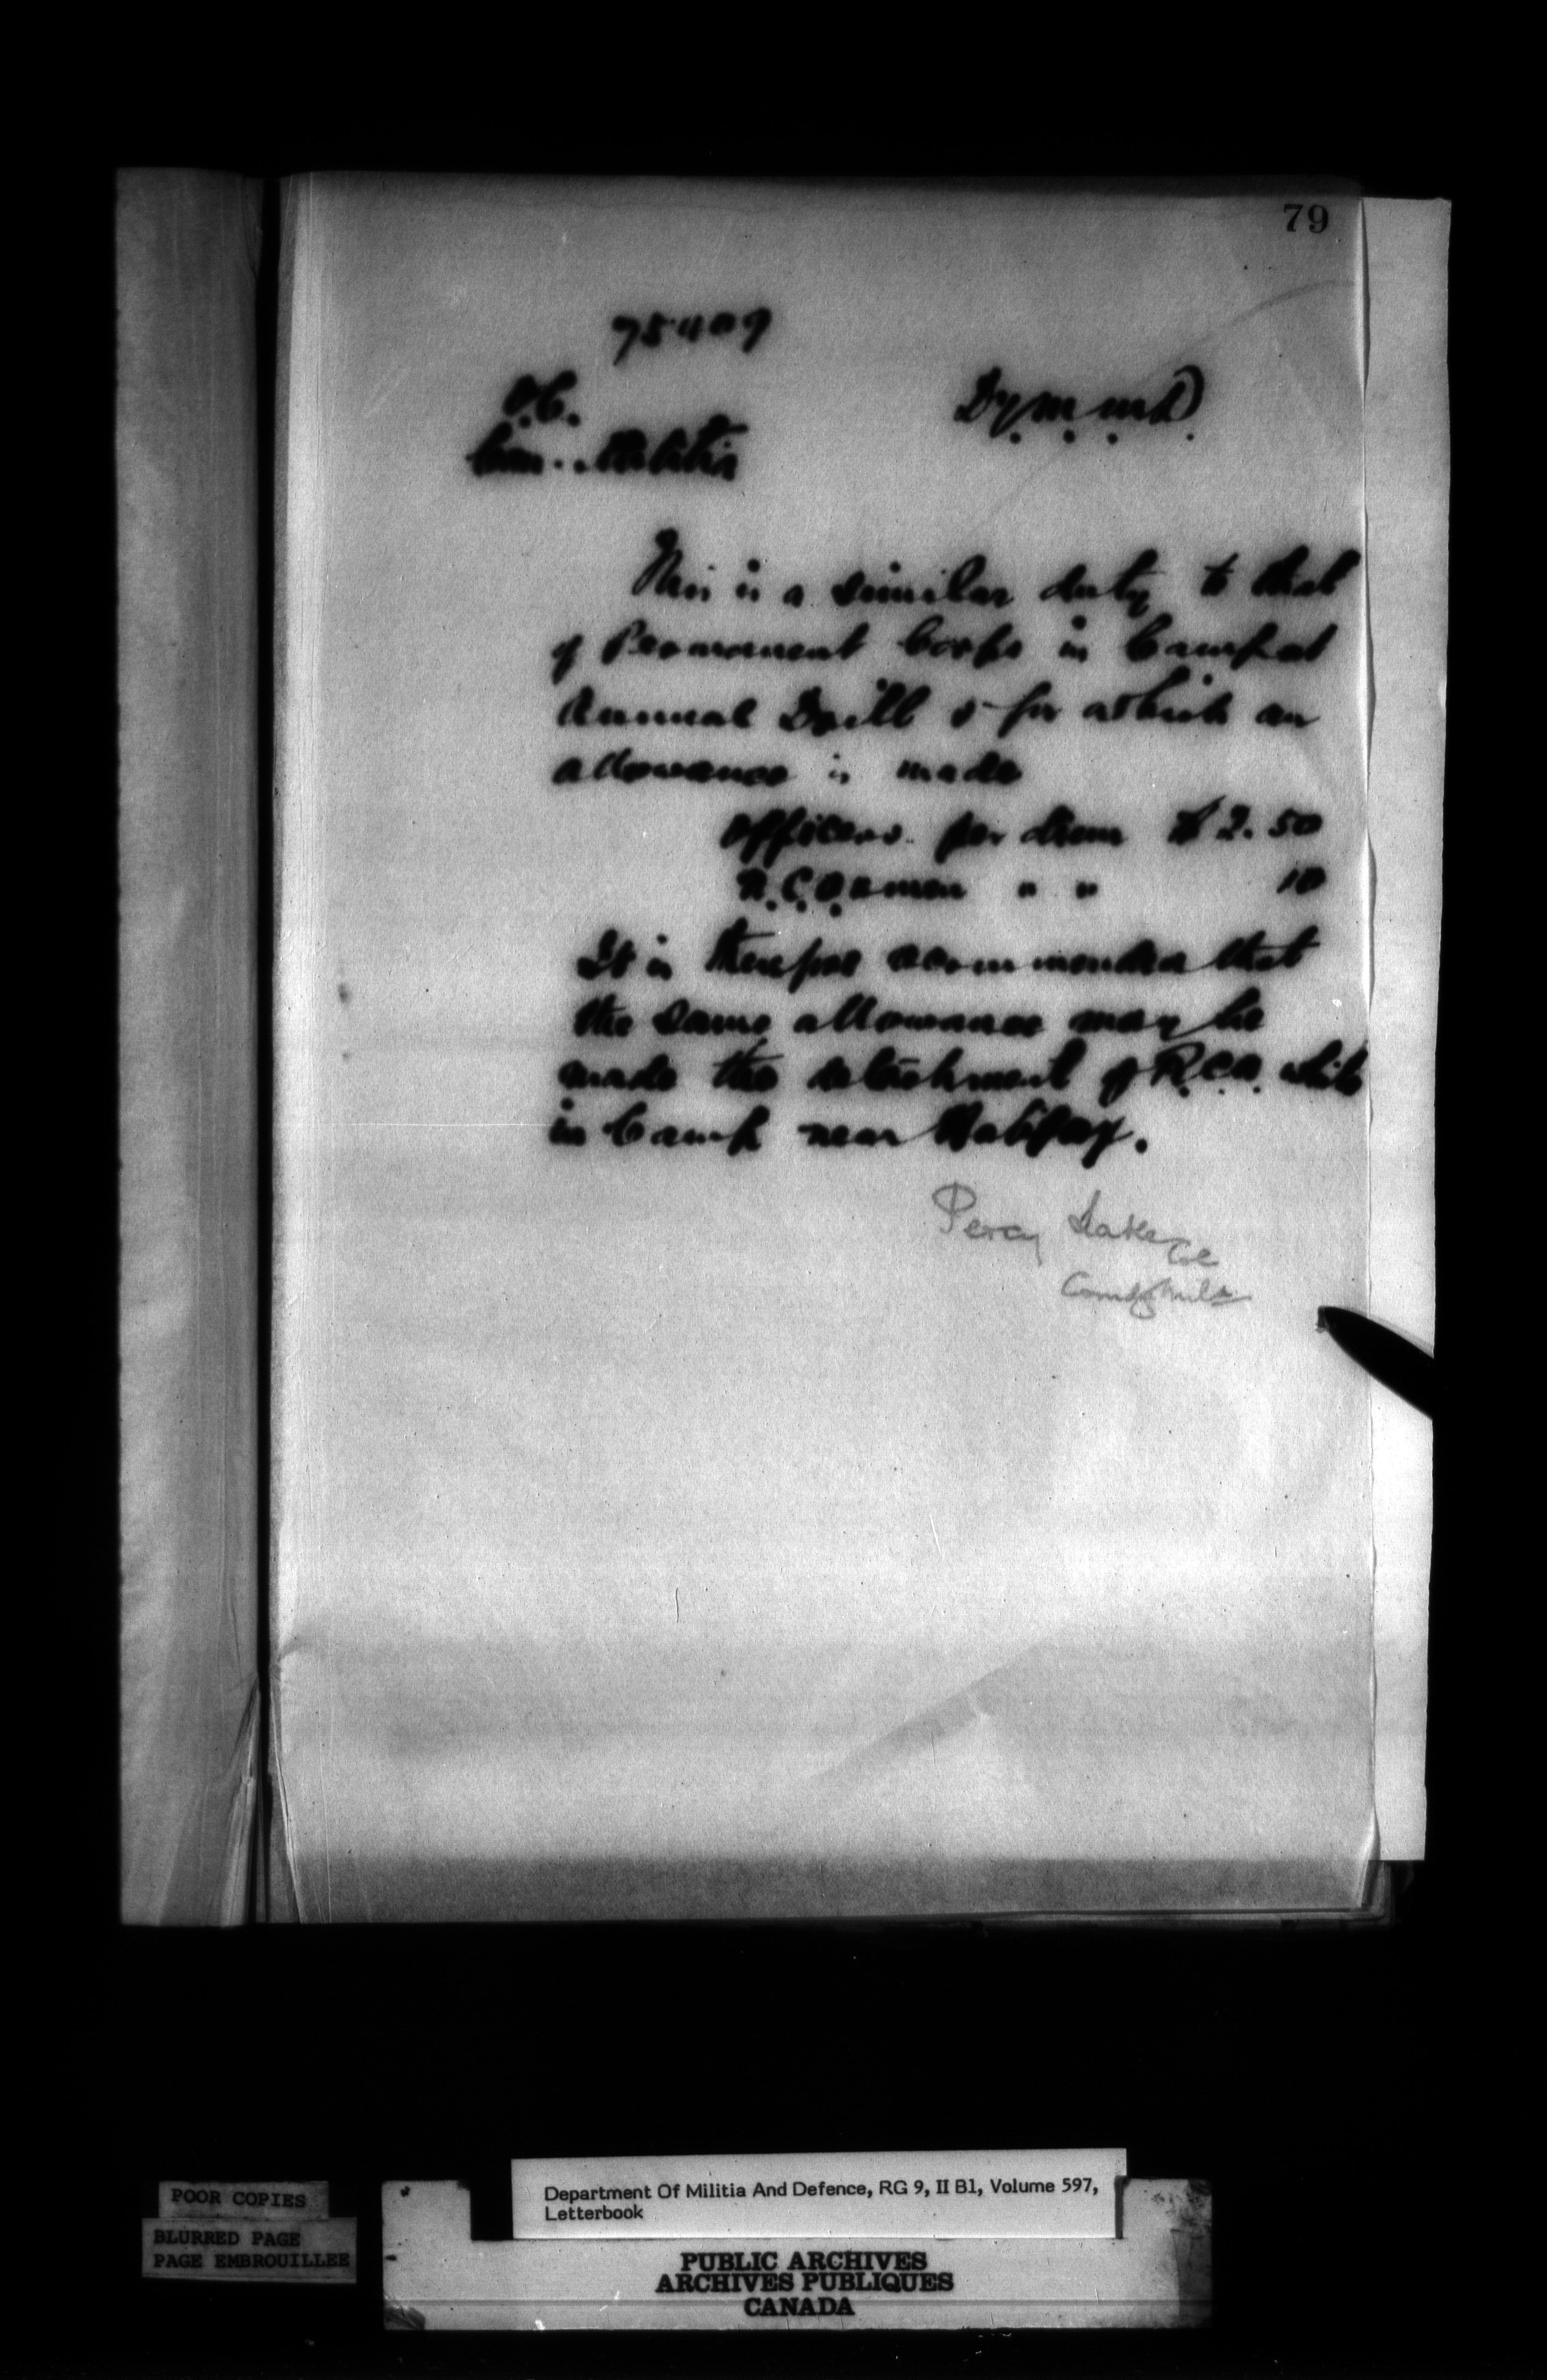 79
75409
O.C.
Can. Militia
Dy. m. m. d)
This is a similar duty to that
of Permanent Corps in Camp at
Annual Drill & for which an
allowance is made
Officers per diem $2.50
N.C.O & men " " 10
It is therefore recommended that
the same allowance may be
made the detachment of R.C.A. while
in Camp near Halifax.
Percy Lake Col
Comdg Mila
POOR COPIES
BLURRED PAGE
PAGE EMBROUILLEE
Department Of Militia And Defence, RG 9, II B1, Volume 597,
Letterbook
PUBLIC ARCHIVES
ARCHIVES PUBLIQUES
CANADA